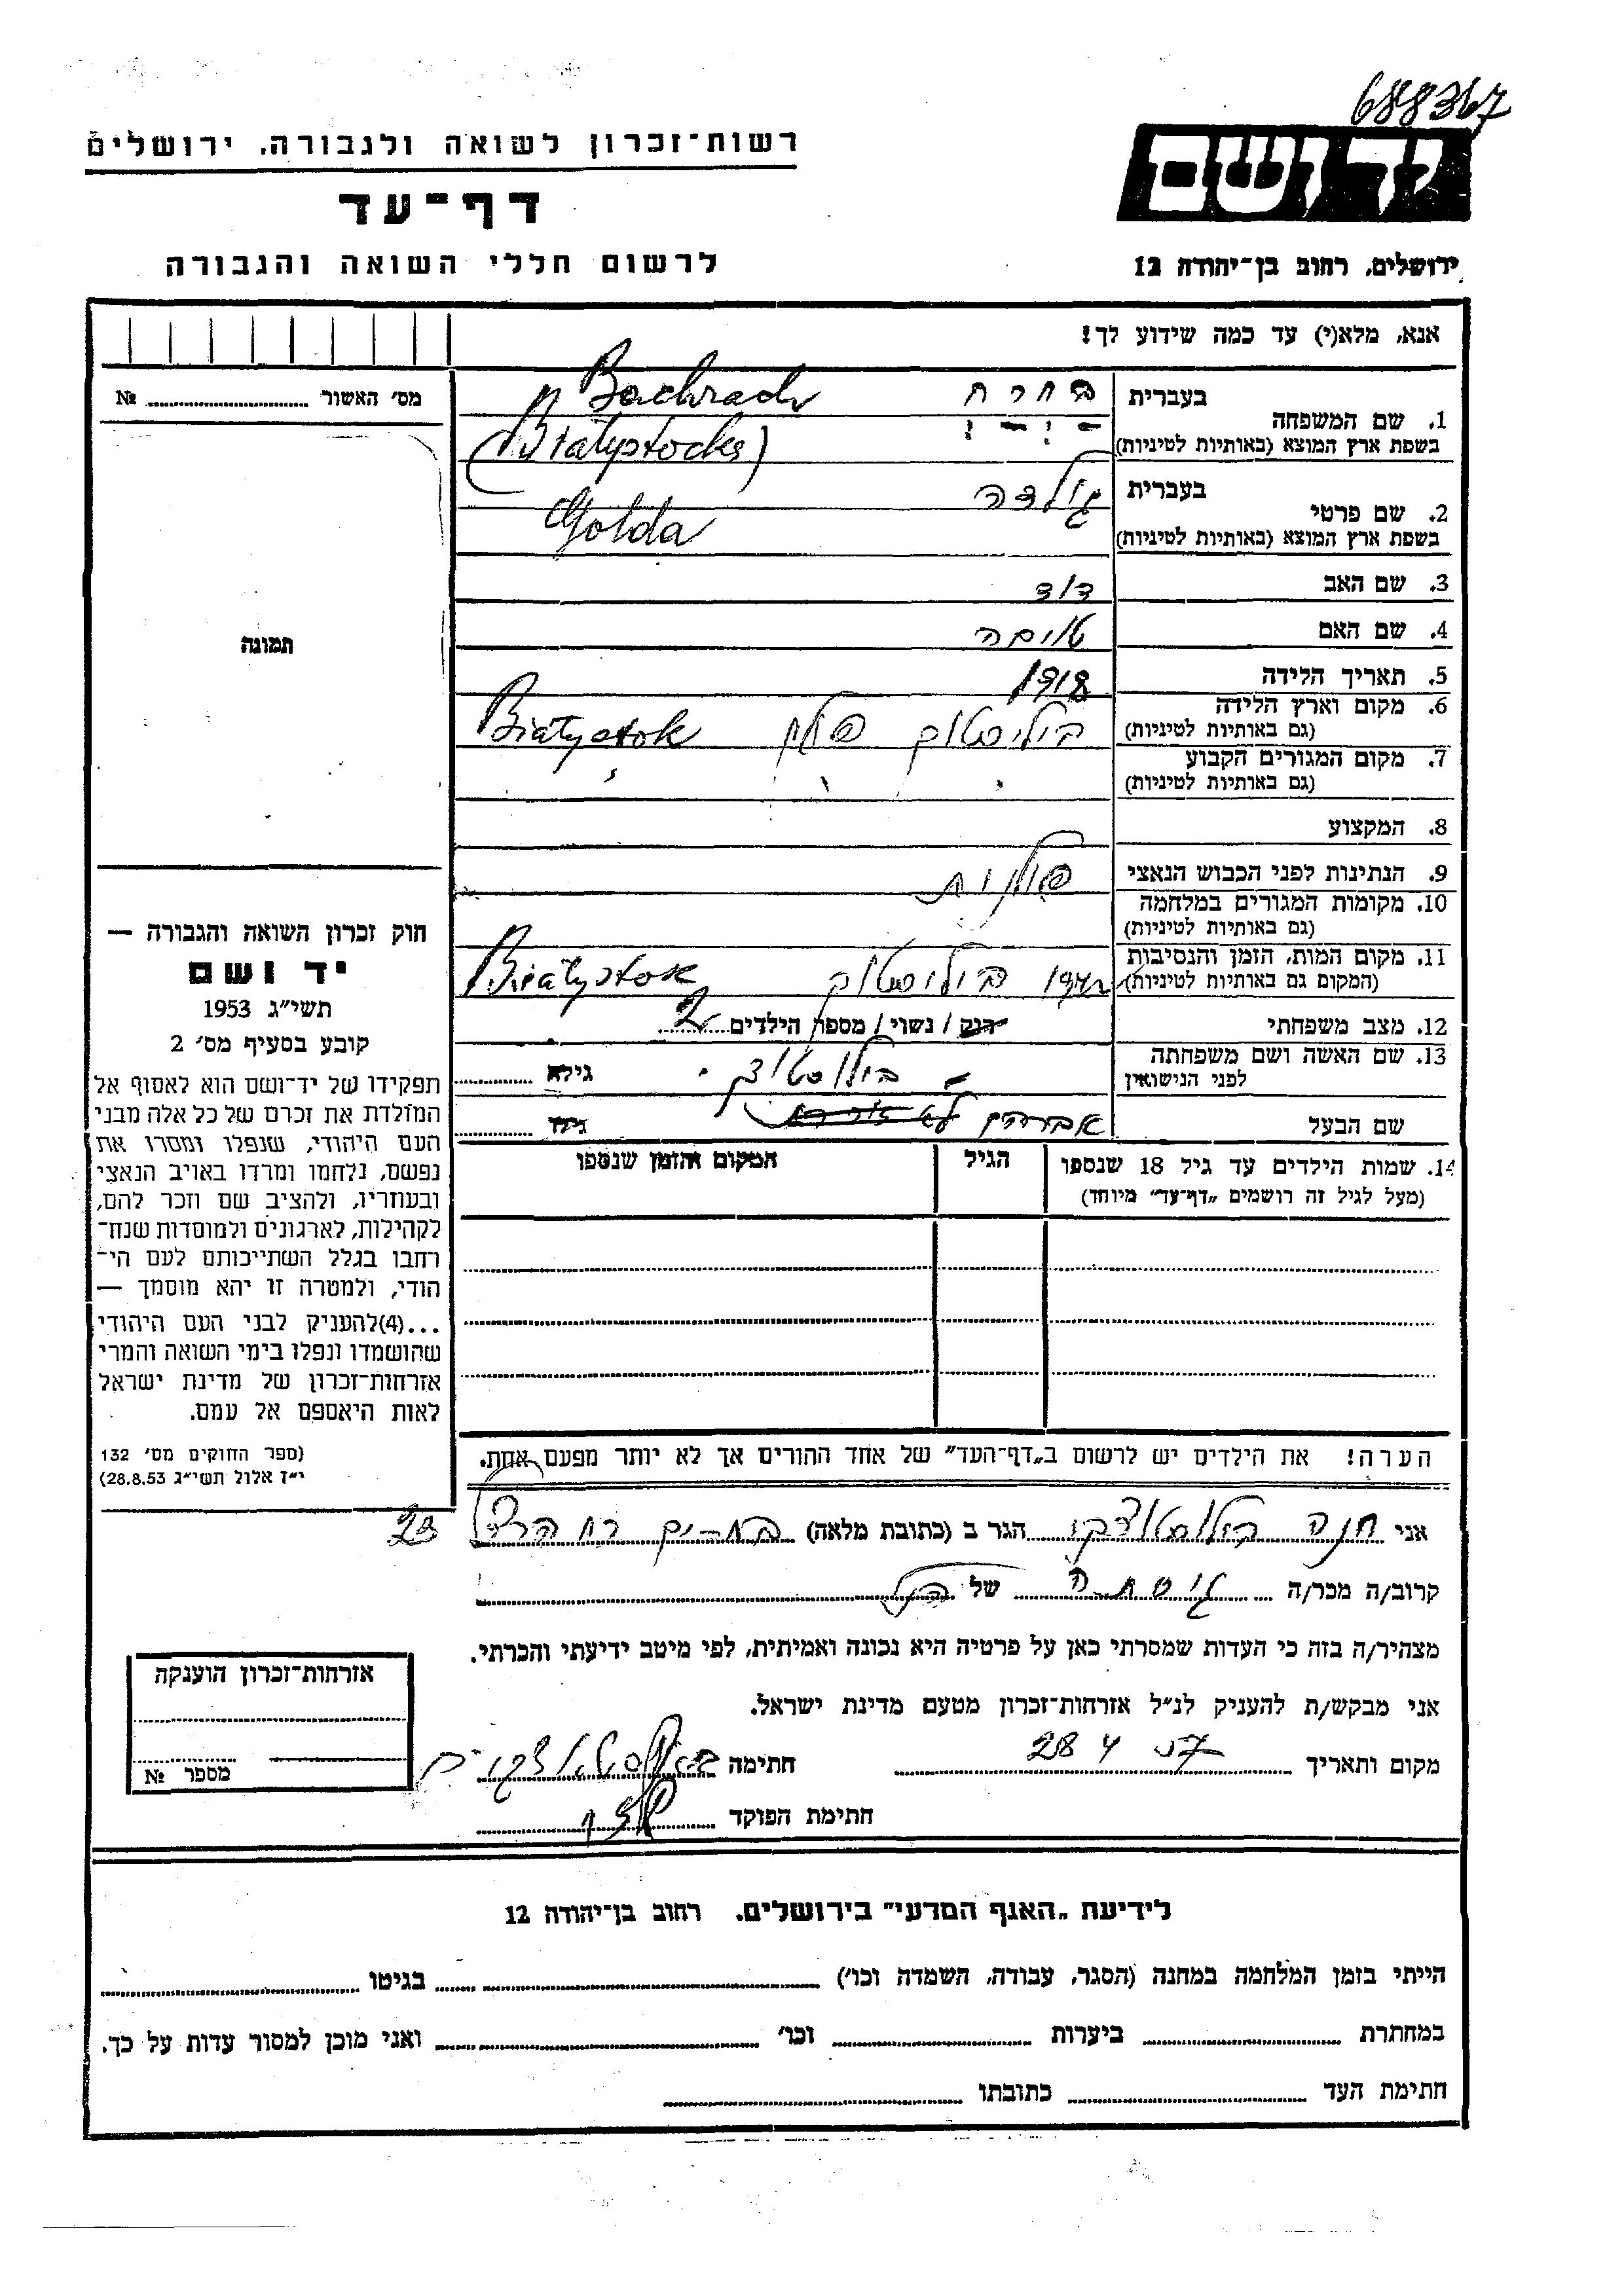 688367
יד ושם
רשות-זכרון לשואה ולגבורה, ירושלים
דף-עד
ירושלים, רחוב בן-יהודה 12
לרשום חללי השואה והגבורה
אנא, מלא(י) עד כמה שידוע לך!
מס׳ האשור № 
1. שם המשפחה
בעברית בחרח
בשפת ארץ המוצא (באותיות לטיניות) Bachrach
2. שם פרטי
בעברית גולדה
בשפת ארץ המוצא (באותיות לטיניות) Golda
3. שם האב דוד
4. שם האם טובה
5. תאריך הלידה 1918
6. מקום וארץ הלידה ביליסטוק פולין Białystok
(גם באותיות לטיניות)
7. מקום המגורים הקבוע
(גם באותיות לטיניות)
8. המקצוע
9. הנתינות לפני הכבוש הנאצי פולנית
10. מקומות המגורים במלחמה
(גם באותיות לטיניות)
11. מקום המות, הזמן והנסיבות ביליסטוק Białystok
(המקום גם באותיות לטיניות)
12. מצב משפחתי רוק / נשוי / מספר הילדים 2
13. שם האשה ושם משפחתה
לפני הנישואין גילה
שם הבעל אברהם גילו
14. שמות הילדים עד גיל 18 שנספו הגיל המקום והזמן שנספו
(מעל לגיל זה רושמים „דף-עד” מיוחד)
הערה! את הילדים יש לרשום ב„דף-העד” של אחד ההורים אך לא יותר מפעם אחת.
תמונה
חוק זכרון השואה והגבורה —
יד ושם
תשי״ג 1953
קובע בסעיף מס׳ 2
תפקידו של יד-ושם הוא לאסוף אל
המולדת את זכרם של כל אלה מבני
העם היהודי, שנפלו ומסרו את
נפשם, נלחמו ומרדו באויב הנאצי
ובעוזריו, ולהציב שם וזכר להם,
לקהילות, לארגונים ולמוסדות שנח-
רחבו בגלל השתייכותם לעם הי-
הודי, ולמטרה זו יהא מוסמך —
...(4)להעניק לבני העם היהודי
שהושמדו ונפלו בימי השואה והמרי
אזרחות-זכרון של מדינת ישראל
לאות היאספם אל עמם.
(ספר החוקים מס׳ 132
י״ז אלול תשי״ג 28.8.53)
אני חנה הגר ב (כתובת מלאה) בת-ים רח הרצל 23
קרוב/ה מכר/ה גיסתה של הנ״ל
מצהיר/ה בזה כי העדות שמסרתי כאן על פרטיה היא נכונה ואמיתית, לפי מיטב ידיעתי והכרתי.
אני מבקש/ת להעניק לנ״ל אזרחות-זכרון מטעם מדינת ישראל.
מקום ותאריך 28 4 57 חתימה
חתימת הפוקד
אזרחות-זכרון הוענקה
מספר №
לידיעת „האגף המדעי” בירושלים, רחוב בן-יהודה 12
הייתי בזמן המלחמה במחנה (הסגר, עבודה, השמדה וכו׳) בגיטו
במחתרת ביערות וכו׳ ואני מוכן למסור עדות על כך.
חתימת העד כתובתו